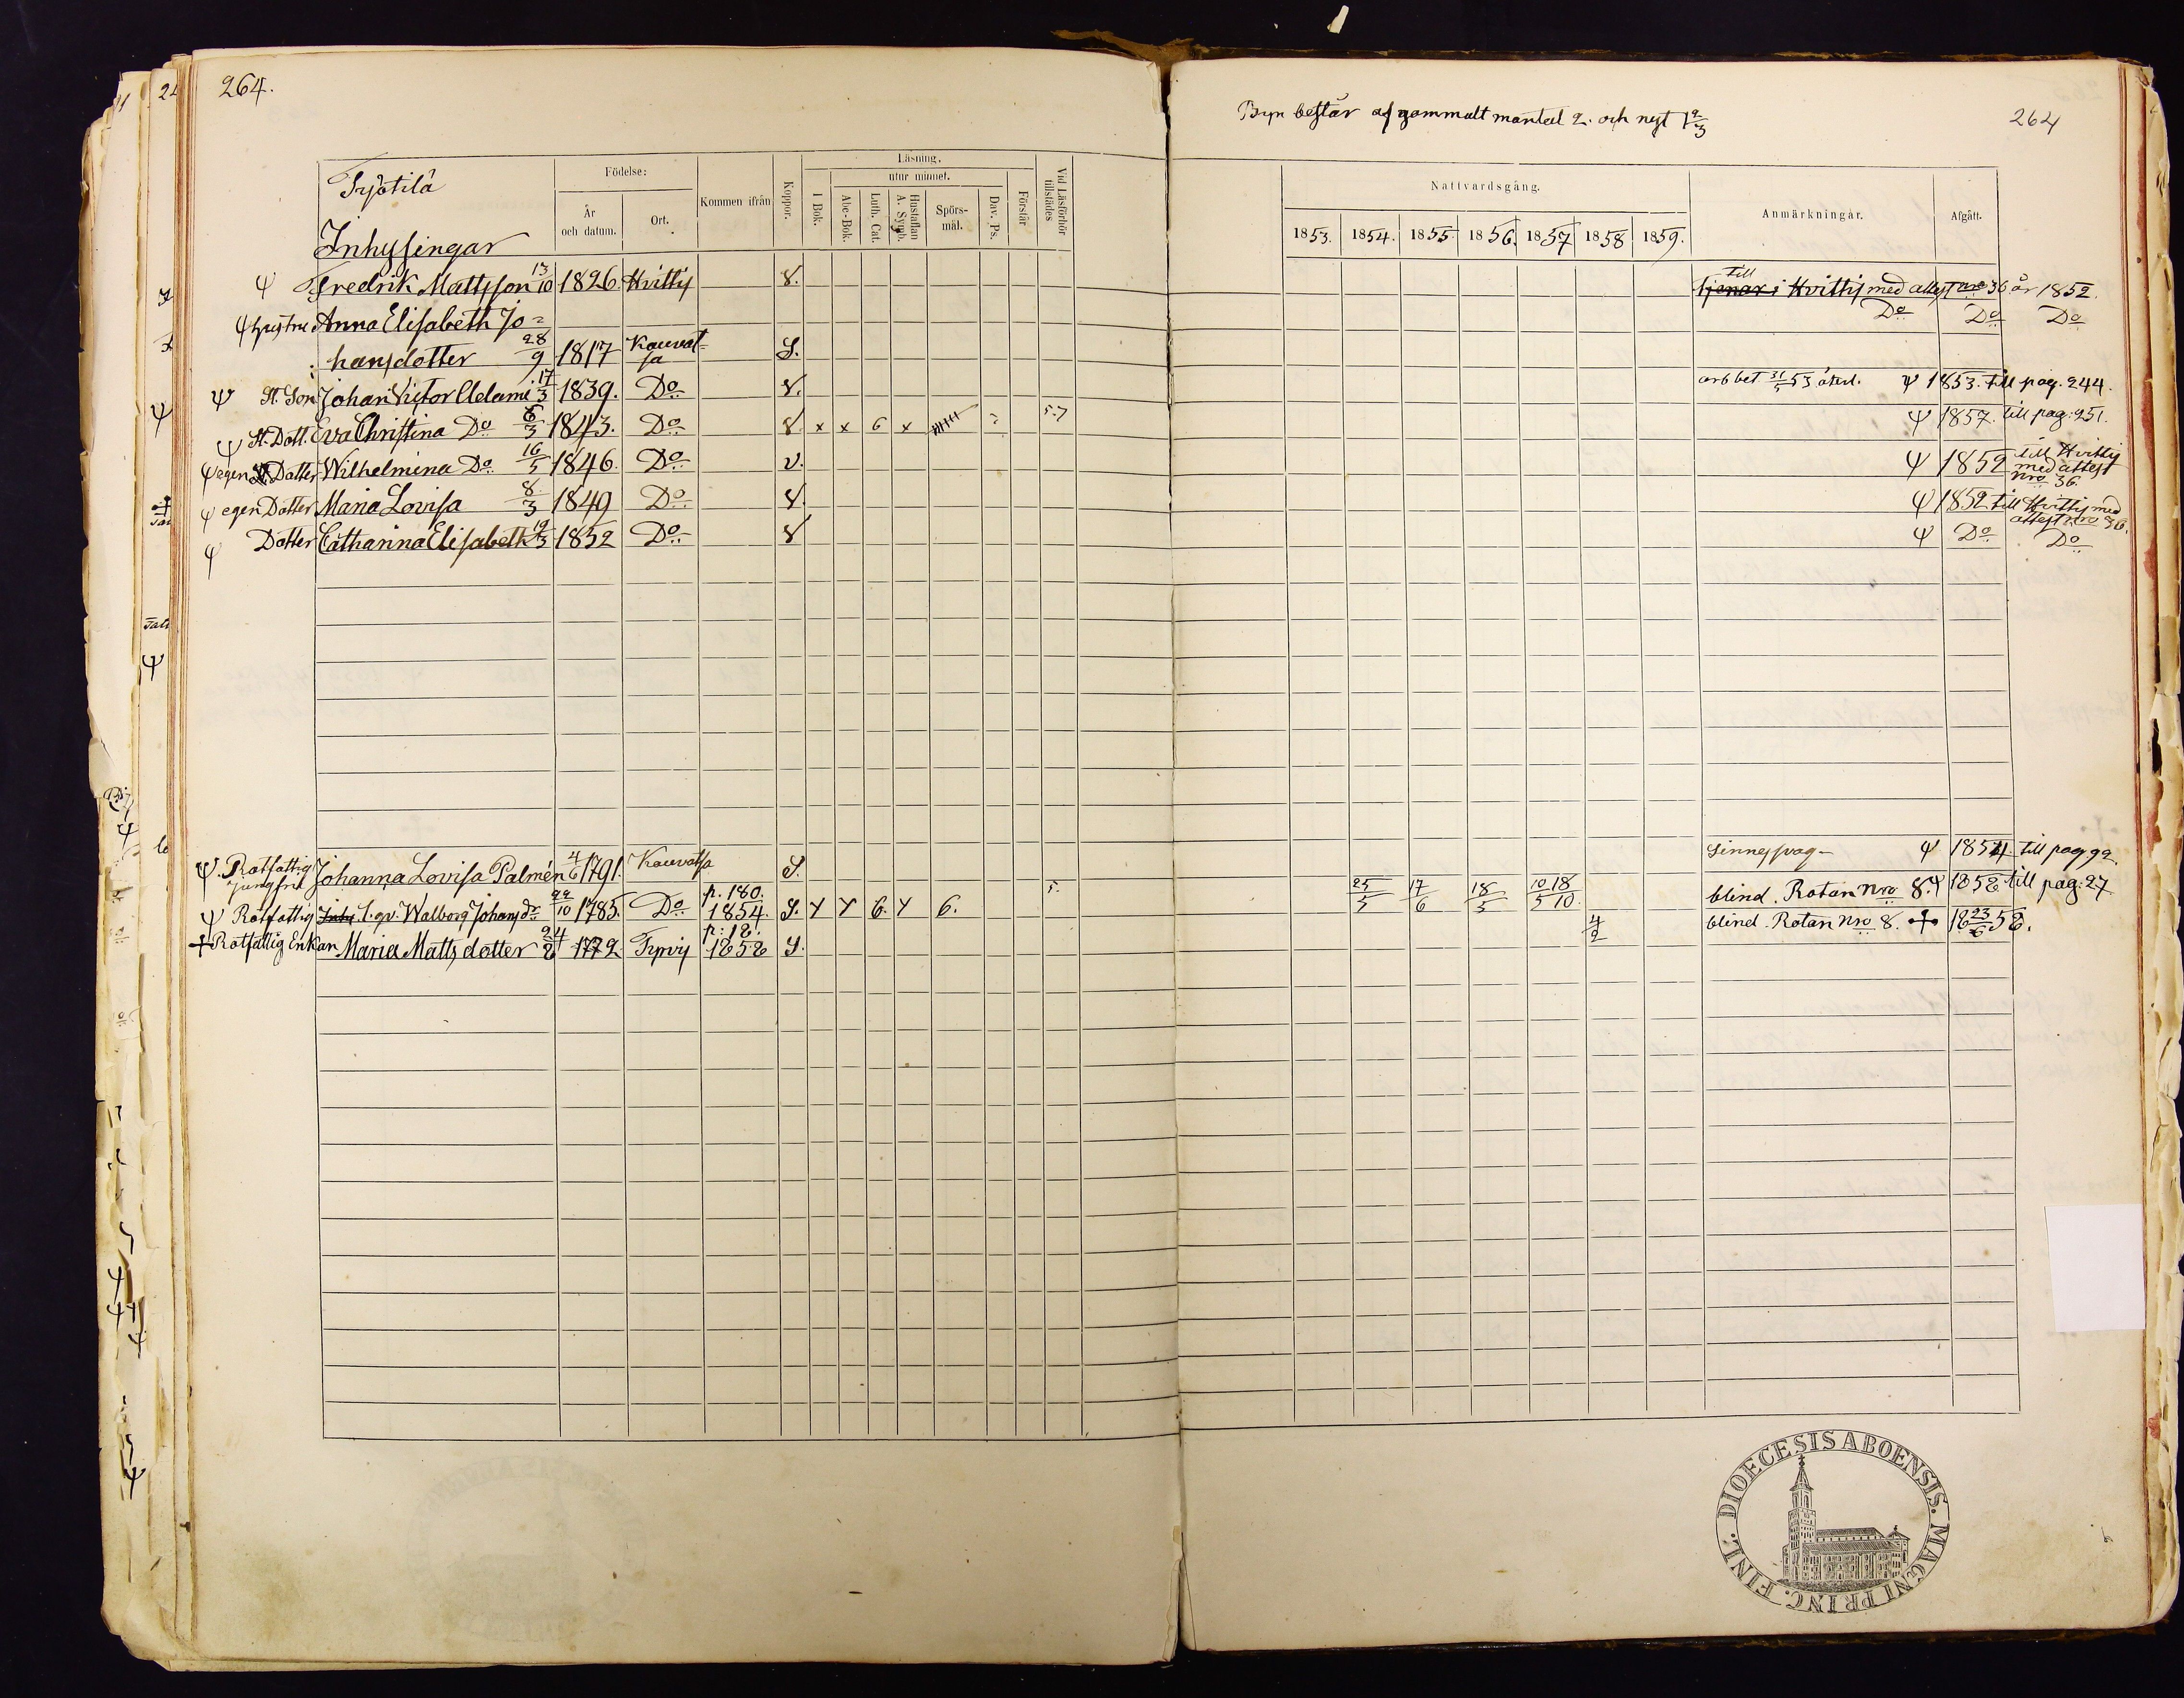 264.
Byn består af gammalt mantal 2. och nytt 1 2/3
264
Födelse:
År och datum.
Ort.
Kommen ifrån
Koppor.
Läsning.
I Bok.
utur minnet.
Abc-Bok.
Luth. Cat.
Hustaflan A. Symb.
Spörs-mål.
Dav. Ps.
Förstår
Vid Läsförhör tillstädes
Nattvardsgång.
1853. 1854. 1855. 1856. 1857 1858 1859.
Anmärkningar.
Afgått.
Inhysingar
Ψ Fredrik Mattsson 13/10 1826. Hvittis till tjenar i Hvittis med attest nro 36 år 1852.
Ψ hustru Anna Elisabeth Jo= Do Do Do
hansdotter 28/9 1817 Kauvat-sa S.
Ψ St. Son Johan Victor 17/3 1839. Do Ψ 1853. till pag. 244.
Ψ St. Dott. Eva Christina Do 6/3 1843. Do x x 6 x 5.7 Ψ 1857. till pag: 251.
Ψ egen Dotter Wilhelmina Do 16/5 1846. Do v. Ψ 1852 till Hvittis med attest nro 36.
Ψ egen Dotter Maria Lovisa 8/3 1849 Do Ψ 1852 till Hvittis med attest nro 36.
Ψ Dotter Catharina Elisabeth 19/3 1852 Do Ψ Do Do
Ψ. Rotfattig Jungfru Johanna Lovisa Palmén 4/6 1791. Kauvatsa S. Sinnessvag - Ψ 1854. till pag 92.
Ψ Rotfattig Inhy. l. qv. Walborg Johansdr 22/10 1785. Do p. 180. 1854. S. Y Y 6. Y 6. 5. 25/5 17/6 18/5 10/5 18/10 blind. Rotan Nro 8. Ψ 1858 till pag: 27
+ Rotfattig Enkan Maria Matts dotter 24/8 1772 Tyrvis p: 18. 1858 S. 4/2 blind. Rotan Nro 8. + 18 23/6 58.
DIOECESIS ABOENSIS. MAGNI PRINC. FINL.